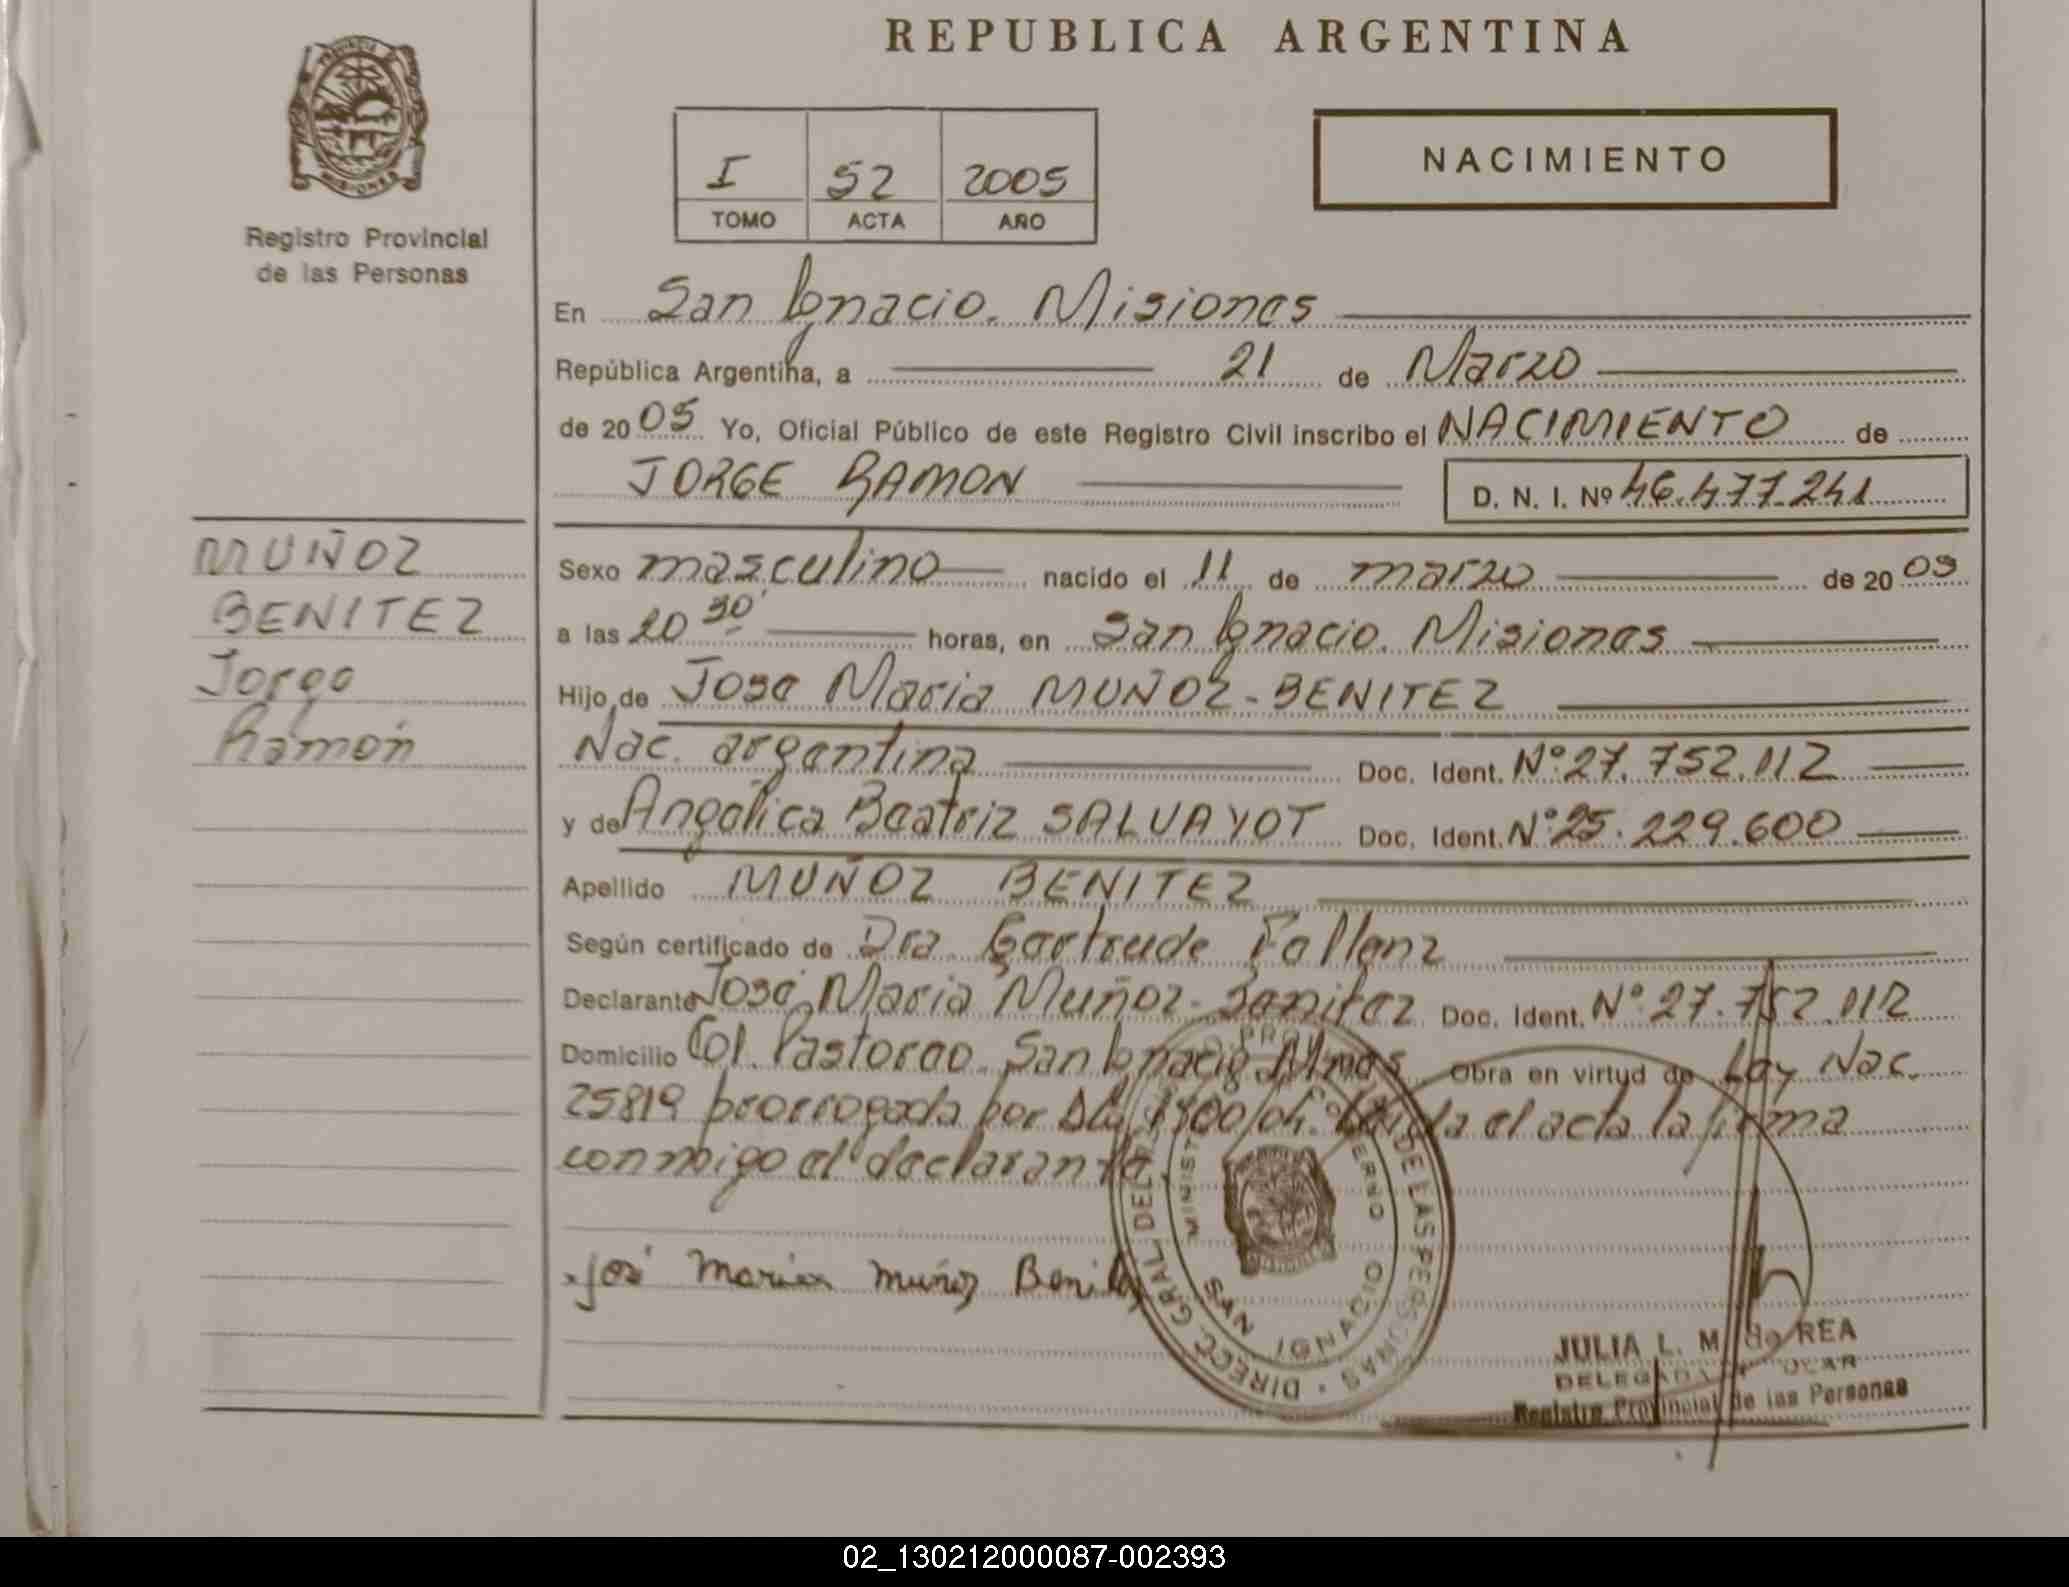 REPUBLICA ARGENTINA
PROVINCIA DE MISIONES
Registro Provincial
de las Personas
I 52 2005
TOMO ACTA AÑO
NACIMIENTO
En San Ignacio. Misiones
República Argentina, a 21 de Marzo
de 2005 Yo, Oficial Público de este Registro Civil inscribo el NACIMIENTO de
JORGE RAMON D. N. I. Nº 46.477.241
MUÑOZ
BENITEZ
Jorge
Ramón
Sexo masculino nacido el 11 de marzo de 2005
a las 20 30' horas, en San Ignacio. Misiones
Hijo de José Maria MUÑOZ-BENITEZ
Nac. argentina Doc. Ident. Nº 27.752.112
y de Angélica Beatriz SALUAYOT Doc. Ident. Nº 25.229.600
Apellido MUÑOZ BENITEZ
Según certificado de Dra. Gertrude Fallenz
Declarante José Maria Muñoz-Benitez Doc. Ident. Nº 27.752.112
Domicilio Col. Pastoreo. San Ignacio. Mnes Obra en virtud de Ley Nac.
25819 prorrogada por 1500/04. el acta la firma
conmigo el declarante.
José Maria Muñoz Benitez
DIRECC. GRAL DEL REG. PROV. DE LAS PERSONAS
SAN IGNACIO
JULIA L. M. de REA
DELEGADA
Registro Provincial de las Personas
02_130212000087-002393